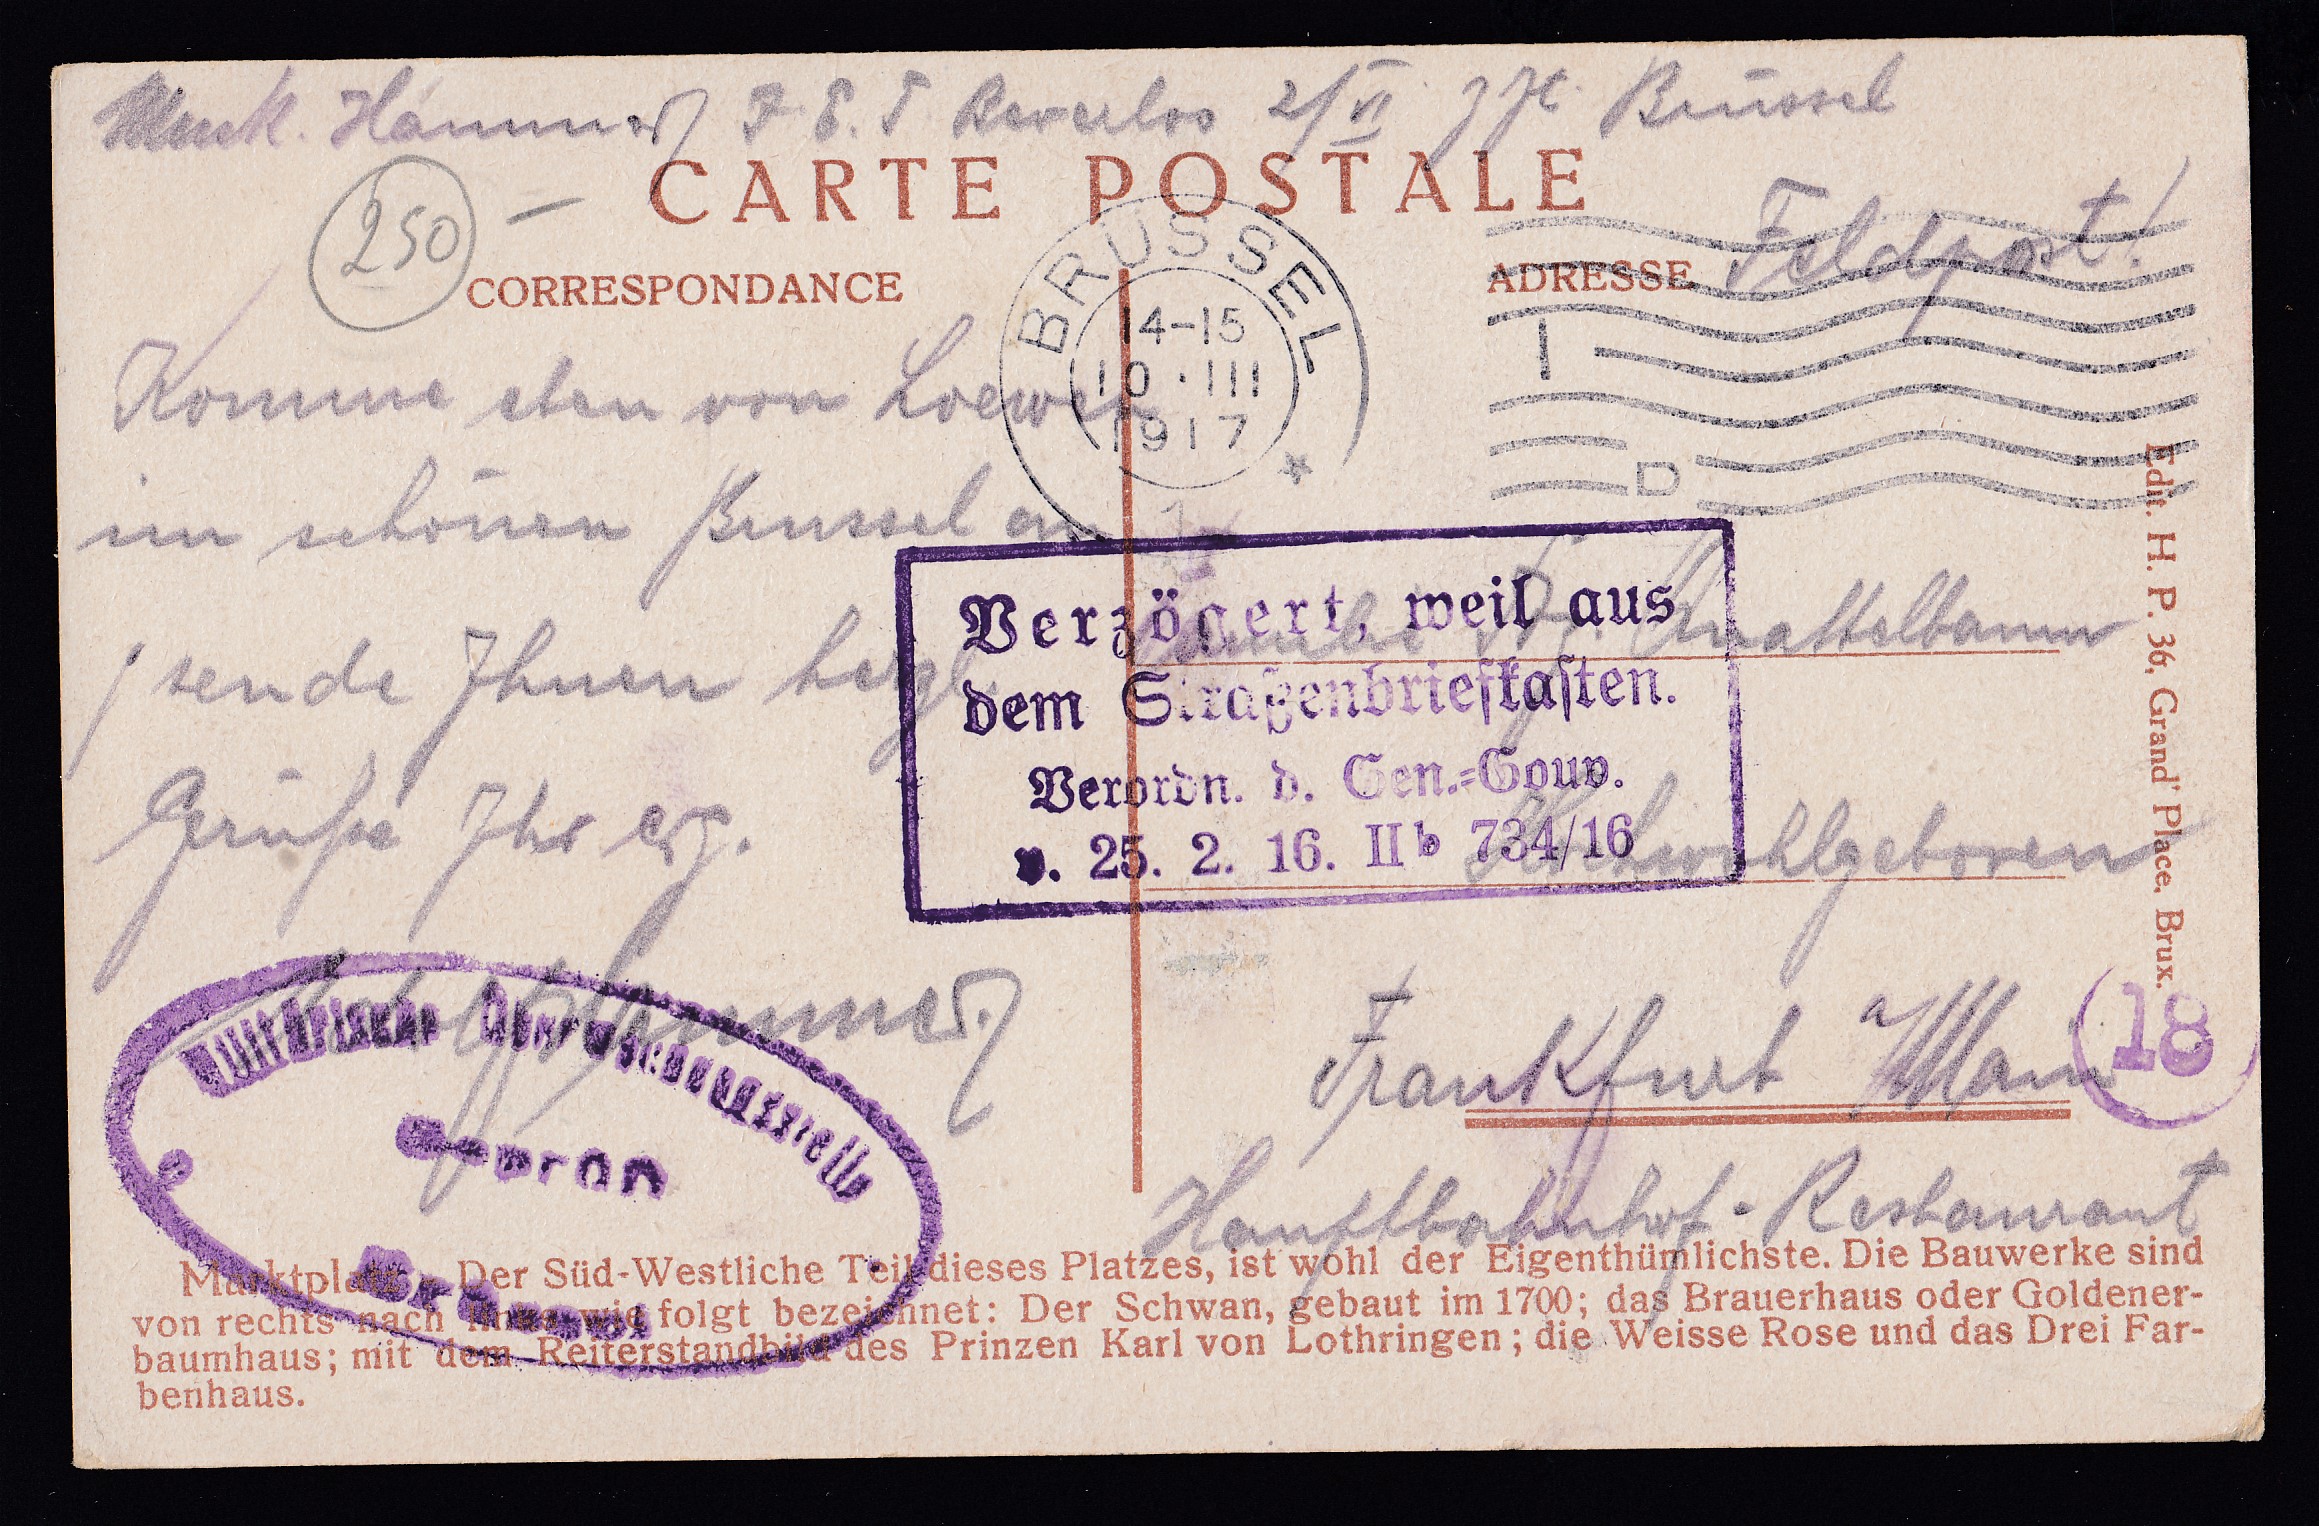 Musk. Hammer, F. E. T Beverloo 2/VI z Zt. Brüssel
CARTE POSTALE
250
CORRESPONDANCE
ADRESSE
Feldpost!
BRÜSSEL
14-15
10.III
1917
Komme eben von Loewen
im schönen Brussel an
sende Ihnen herzl.
Grüsse Ihr erg.
Hammer.
Verzögert, weil aus
dem Straßenbriefkasten.
Verordn. d. Gen.-Gouv.
v. 25. 2. 16. IIb 734/16
Hochwohlgeboren
Frankfurt a/Main
Hauptbahnhof-Restaurant
18
Edit. H. P. 36, Grand' Place, Brux.
Militärische Überwachungsstelle
Brüssel
Marktplatz. Der Süd-Westliche Teil dieses Platzes, ist wohl der Eigenthümlichste. Die Bauwerke sind
von rechts nach links wie folgt bezeichnet: Der Schwan, gebaut im 1700; das Brauerhaus oder Goldener-
baumhaus; mit dem Reiterstandbild des Prinzen Karl von Lothringen; die Weisse Rose und das Drei Far-
benhaus.